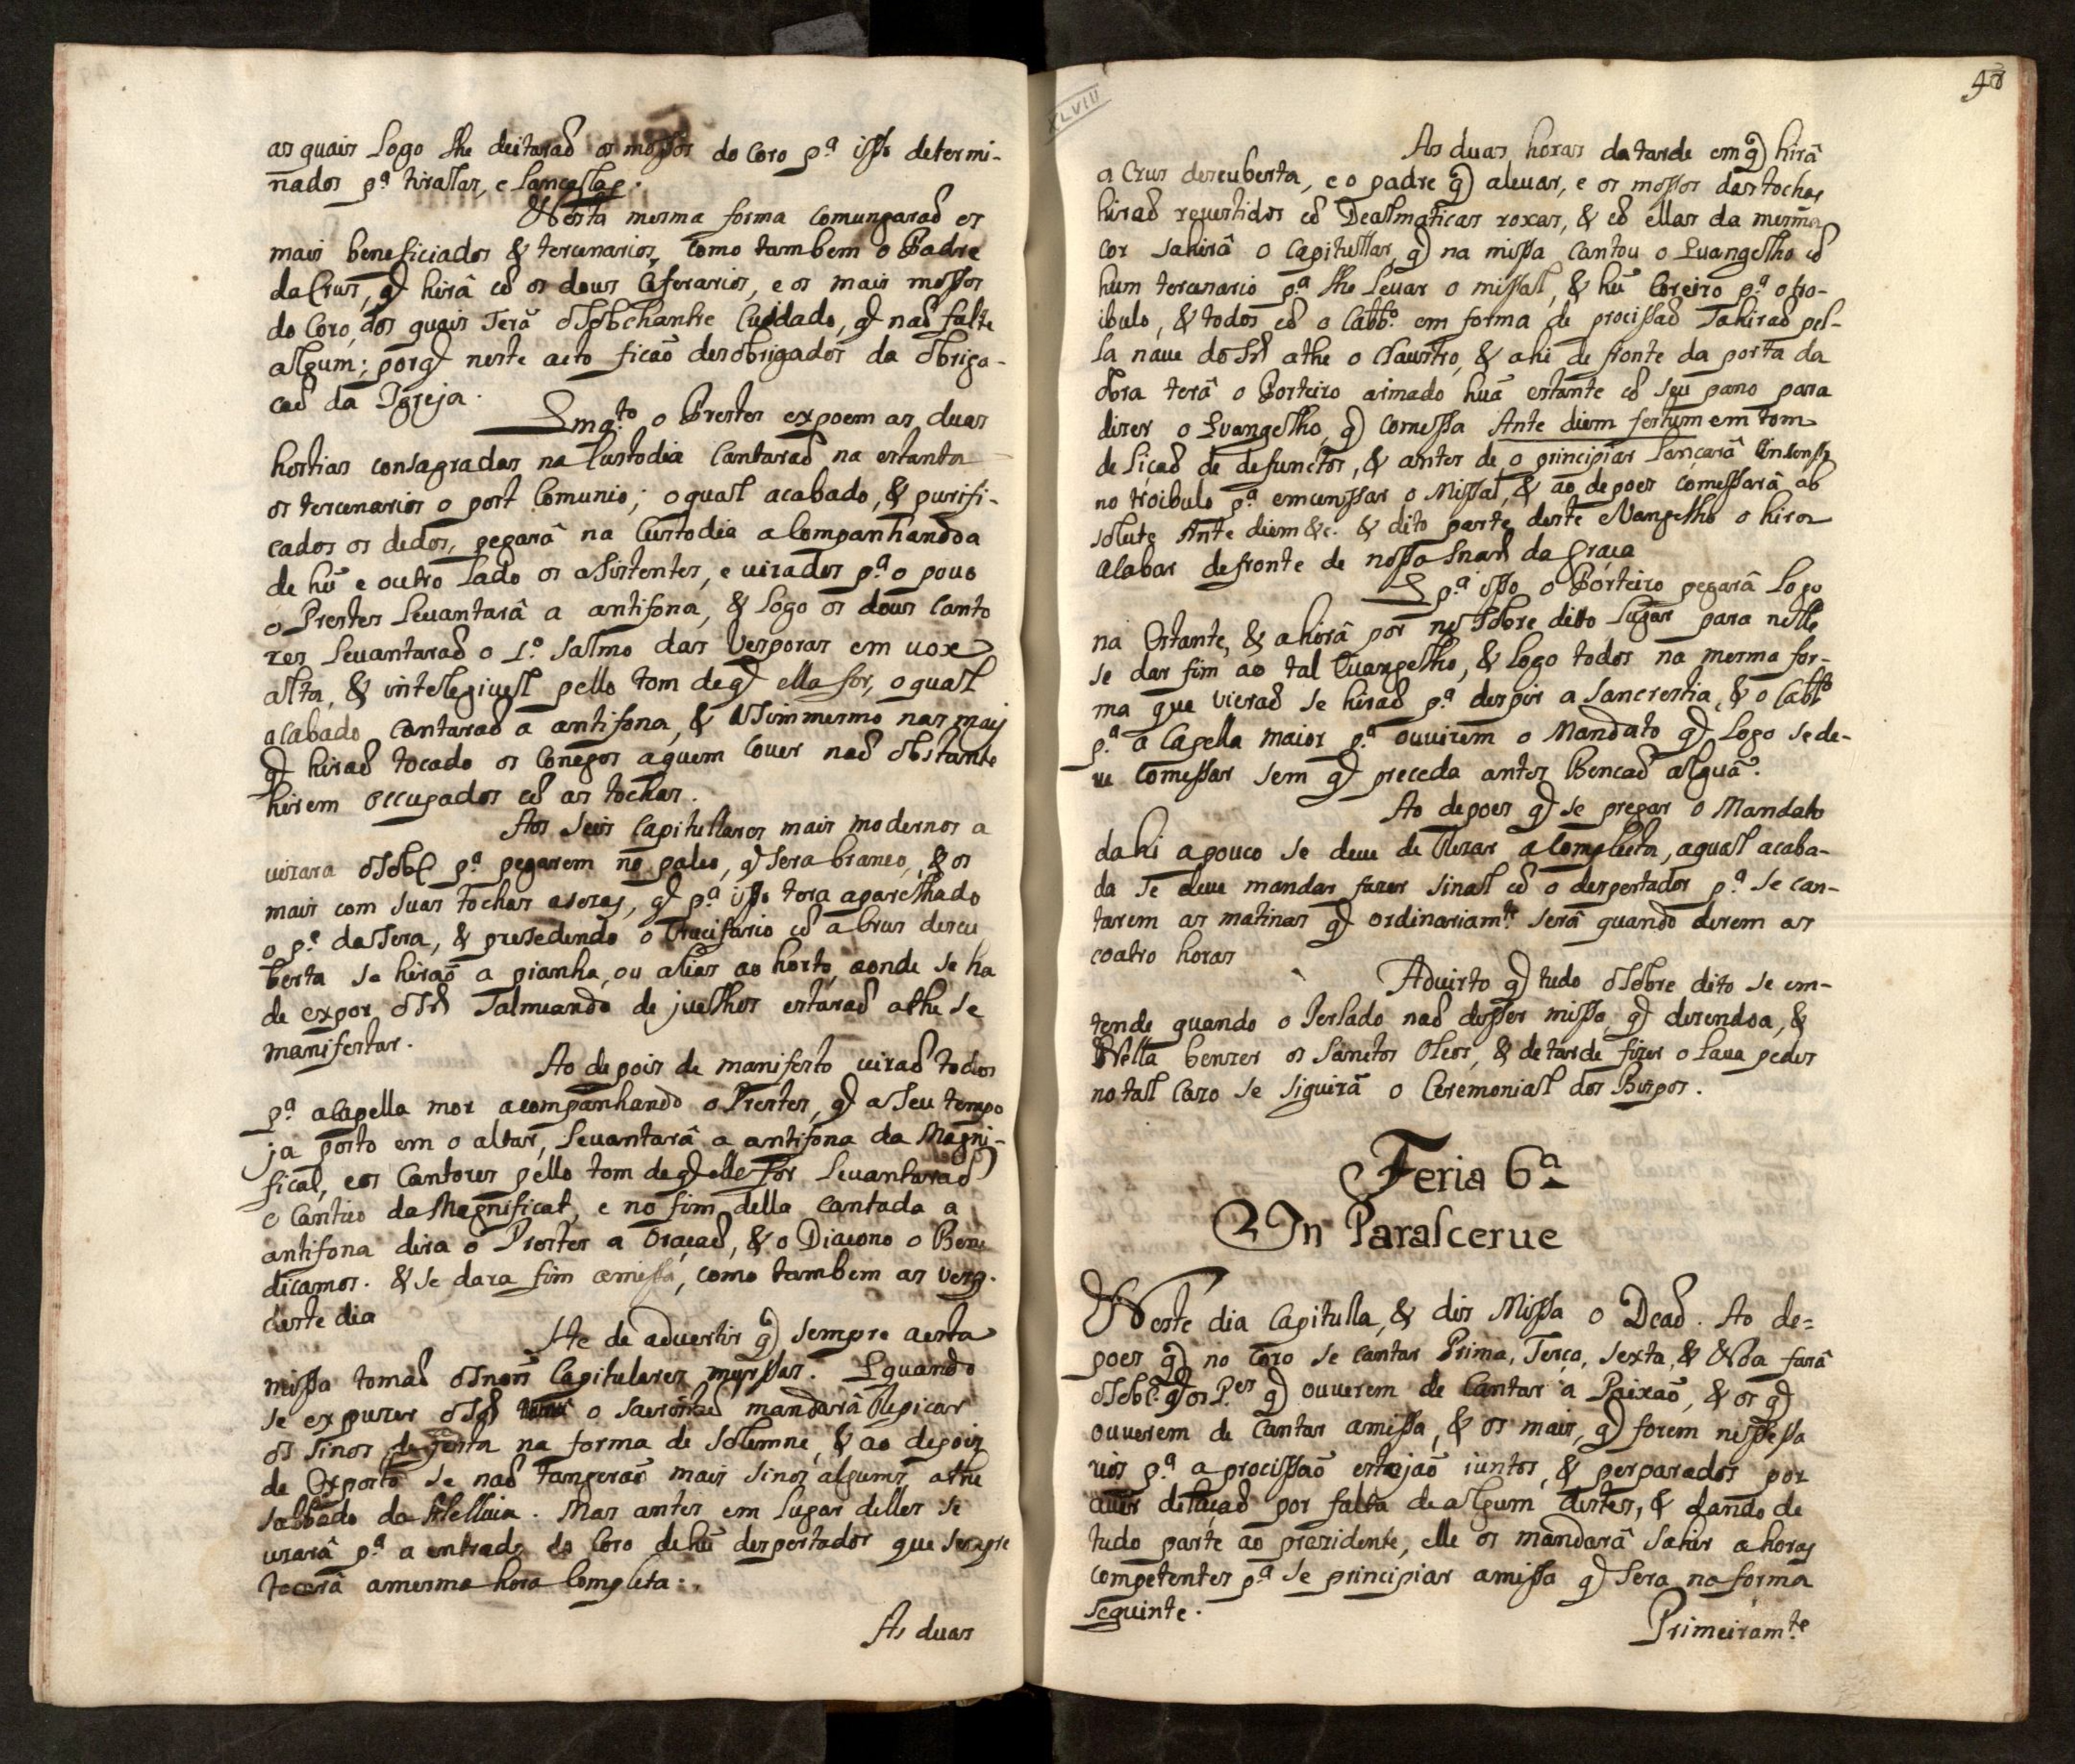 as quais Logo lhe deitaraõ os mossos do Coro p.ª isso determi-
nados p.ª tirallas, e Lancallas.
Nesta mesma forma comungaraõ os
mais beneficiados & tercenarios, como tambem o Padre
da Crus, q̃ hirâ cõ os dous Ceferarios, e os mais mossos
do Coro, dos quais Terâ o Sobchantre Cuidado, q̃ naõ falte
algum; porq̃ neste acto ficaõ desobrigados da obriga-
caõ da Igreja.
Emq.to o Prestes expoem as duas
hostias consagradas na Custodia Cantaraõ na estante
os tercenarios o post Comunio; o qual acabado, & purifi-
cados os dedos, pegarâ na Custodia acompanhandoa
de hũ e outro Lado os asistentes, e uirados p.ª o pouo
o Prestes Leuantarâ a antifona, & Logo os dous Canto
res Leuantaraõ o 1.º salmo das Vesporas em uox
alta, & intelegiuel pello tom de q̃ ella for, o qual
acabado Cantaraõ a antifona, & Asimmesmo nas mais
q̃ hiraõ tocado os Conegos aquem Couer naõ obstante
hirem occupados cõ as tochas.
Aos Seis Capitullares mais modernos a
uizara o Sobc p.ª pegarem no paleo, q̃ sera branco, & os
mais com suas tochas asezas, q̃ p.ª isso tera aparelhado
o p.e da Sera, & presedendo o Crucifario cõ a Crus descu
berta se hiraõ a pianha, ou alias ao horto, aonde se ha
de expor o Sr̃ Salmeando de juelhos estaraõ athe se
manifestar.
Ao depois de manifesto uiraõ todos
p.ª a Capella mor acompanhando o Prestes, q̃ a seu tempo
ja posto em o altar, Leuantarâ a antifona da Magni-
ficat, e os Cantores pello tom de q̃ elle for Leuantaraõ
o Cantico da Magnificat, e no fim della cantada a
antifona dira o Prestes a Oraçaõ, & o Diacono o Bene
dicamos. & se dara fim a missa, como tambem as Vesp.
deste dia
He de aduertir q̃ sempre aesta
missa tomaõ os nos Capitulares mursas. E quando
se expuzer o Sr̃ o Sacristaõ mandarâ Repicar
os sinos de festa na forma de solemne, & ao depois
de Exposto se naõ tangeraõ mais sinos alguns athe
sabbado da Alelluia. Mas antes em Lugar delles se
uzarâ p.ª a entrada do Coro de hũ despertador que sempre
tocarâ amesma hora Completa:.
As duas
48
XLVIII
As duas horas da tarde em q̃ hirâ
a Crus descuberta, e o padre q̃ a leuar, e os mossos das tochas
hiraõ reuestidos cõ Dealmaticas roxas, & cõ ellas da mesma
cor sahirâ o Capitullar, q̃ na missa Cantou o Euangelho cõ
hum tercenario p.ª lhe Leuar o missal, & hũ Coreiro p.ª o tro-
ibulo, & todos cõ o Cabb.º em forma de procissaõ Sahiraõ pel-
la naue do Sr̃ athe o Claustro, & ahi de fronte da porta da
obra terâ o Porteiro armado huã estante cõ seu pano para
dizer o Evangelho, q̃ comessa Ante diem festum em tom
de Liçaõ de defunctos, & antes de o principiar Lançarâ Insenso
no troibulo p.ª emcenssar o Missal, & ao depoes comessarâ ab
solute Ante diem &c. & dito parte deste Evangelho o hira
acabar defronte de nossa Snarã da Graça
E p.ª isso o Porteiro pegarâ Logo
na Estante, & a hirâ por no Sobre ditto Lugar para nelle
se dar fim ao tal Euangelho, & Logo todos na mesma for-
ma que vieraõ se hiraõ p.ª despir a sancrestia, & o Cabb.º
p.ª a Capella maior p.ª ouuirem o Mandato q̃ Logo se de-
ue Comessar sem q̃ preceda antes Bencaõ alguã.
Ao depoes q̃ se pregar o Mandato
dahi a pouco se deue de Rezar a Completa, a qual acaba-
da se deue mandar fazer sinal cõ o despertador p.ª se can-
tarem as matinas q̃ ordinariam.te serâ quando derem as
coatro horas
Aduirto q̃ tudo o Sobre dito se em-
tende quando o Perlado naõ disser missa, q̃ dizendoa, &
Nella benzer os Sanctos Oleos, & de tarde fizer o Laua pedes
no tal Cazo se siguirâ o Ceremonial dos Bispos.
Feria 6ª
In Parasceeue
Neste dia Capitulla, & dis Missa o Deaõ. Ao de=
poes q̃ no Coro se cantar Prima, Terça, Sexta, & Noa farâ
o Sobc. q̃ os P.es q̃ ouuerem de Cantar a Paixaõ, & os q̃
ouuerem de Cantar amissa, & os mais, q̃ forem nessessa
rios p.ª a procissaõ estejaõ iuntos, & perparados por
auer delaçaõ por falta de algum destes, & dando de
tudo parte ao prezidente, elle os mandarâ Sahir a horas
Competentes p.ª se principiar amissa q̃ Sera na forma
seguinte.
Primeiram.te